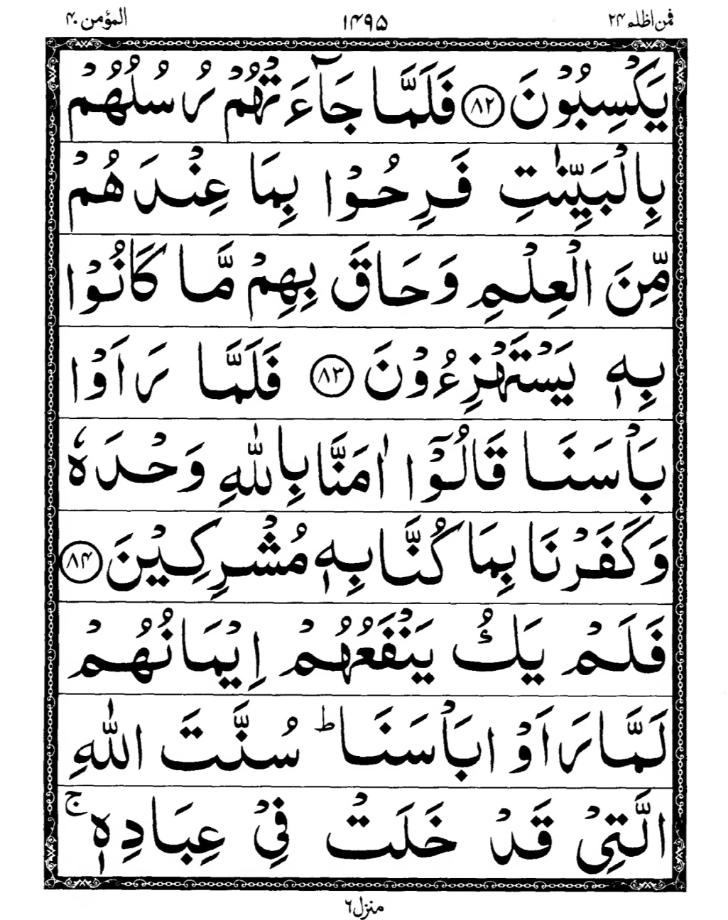 فمن اظلم ۲۴ ۱۴۹۵ المؤمن ۴۰
يَكْسِبُوْنَ ﴿۸۲﴾ فَلَمَّا جَآءَتْهُمْ رُسُلُهُمْ
بِالْبَيِّنٰتِ فَرِحُوْا بِمَا عِنْدَهُمْ
مِّنَ الْعِلْمِ وَحَاقَ بِهِمْ مَّا كَانُوْا
بِهٖ يَسْتَهْزِءُوْنَ ﴿۸۳﴾ فَلَمَّا رَاَوْا
بَاْسَنَا قَالُوْٓا اٰمَنَّا بِاللّٰهِ وَحْدَهٗ
وَكَفَرْنَا بِمَا كُنَّا بِهٖ مُشْرِكِيْنَ ﴿۸۴﴾
فَلَمْ يَكُ يَنْفَعُهُمْ اِيْمَانُهُمْ
لَمَّا رَاَوْا بَاْسَنَا ؕ سُنَّتَ اللّٰهِ
الَّتِيْ قَدْ خَلَتْ فِيْ عِبَادِهٖ ۚ
منزل ۶